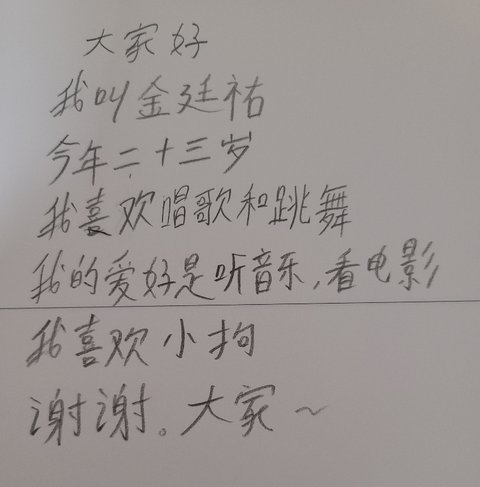 大家好
我叫金廷祐
今年二十三岁
我喜欢唱歌和跳舞
我的爱好是听音乐,看电影
我喜欢小拘
谢谢。大家~